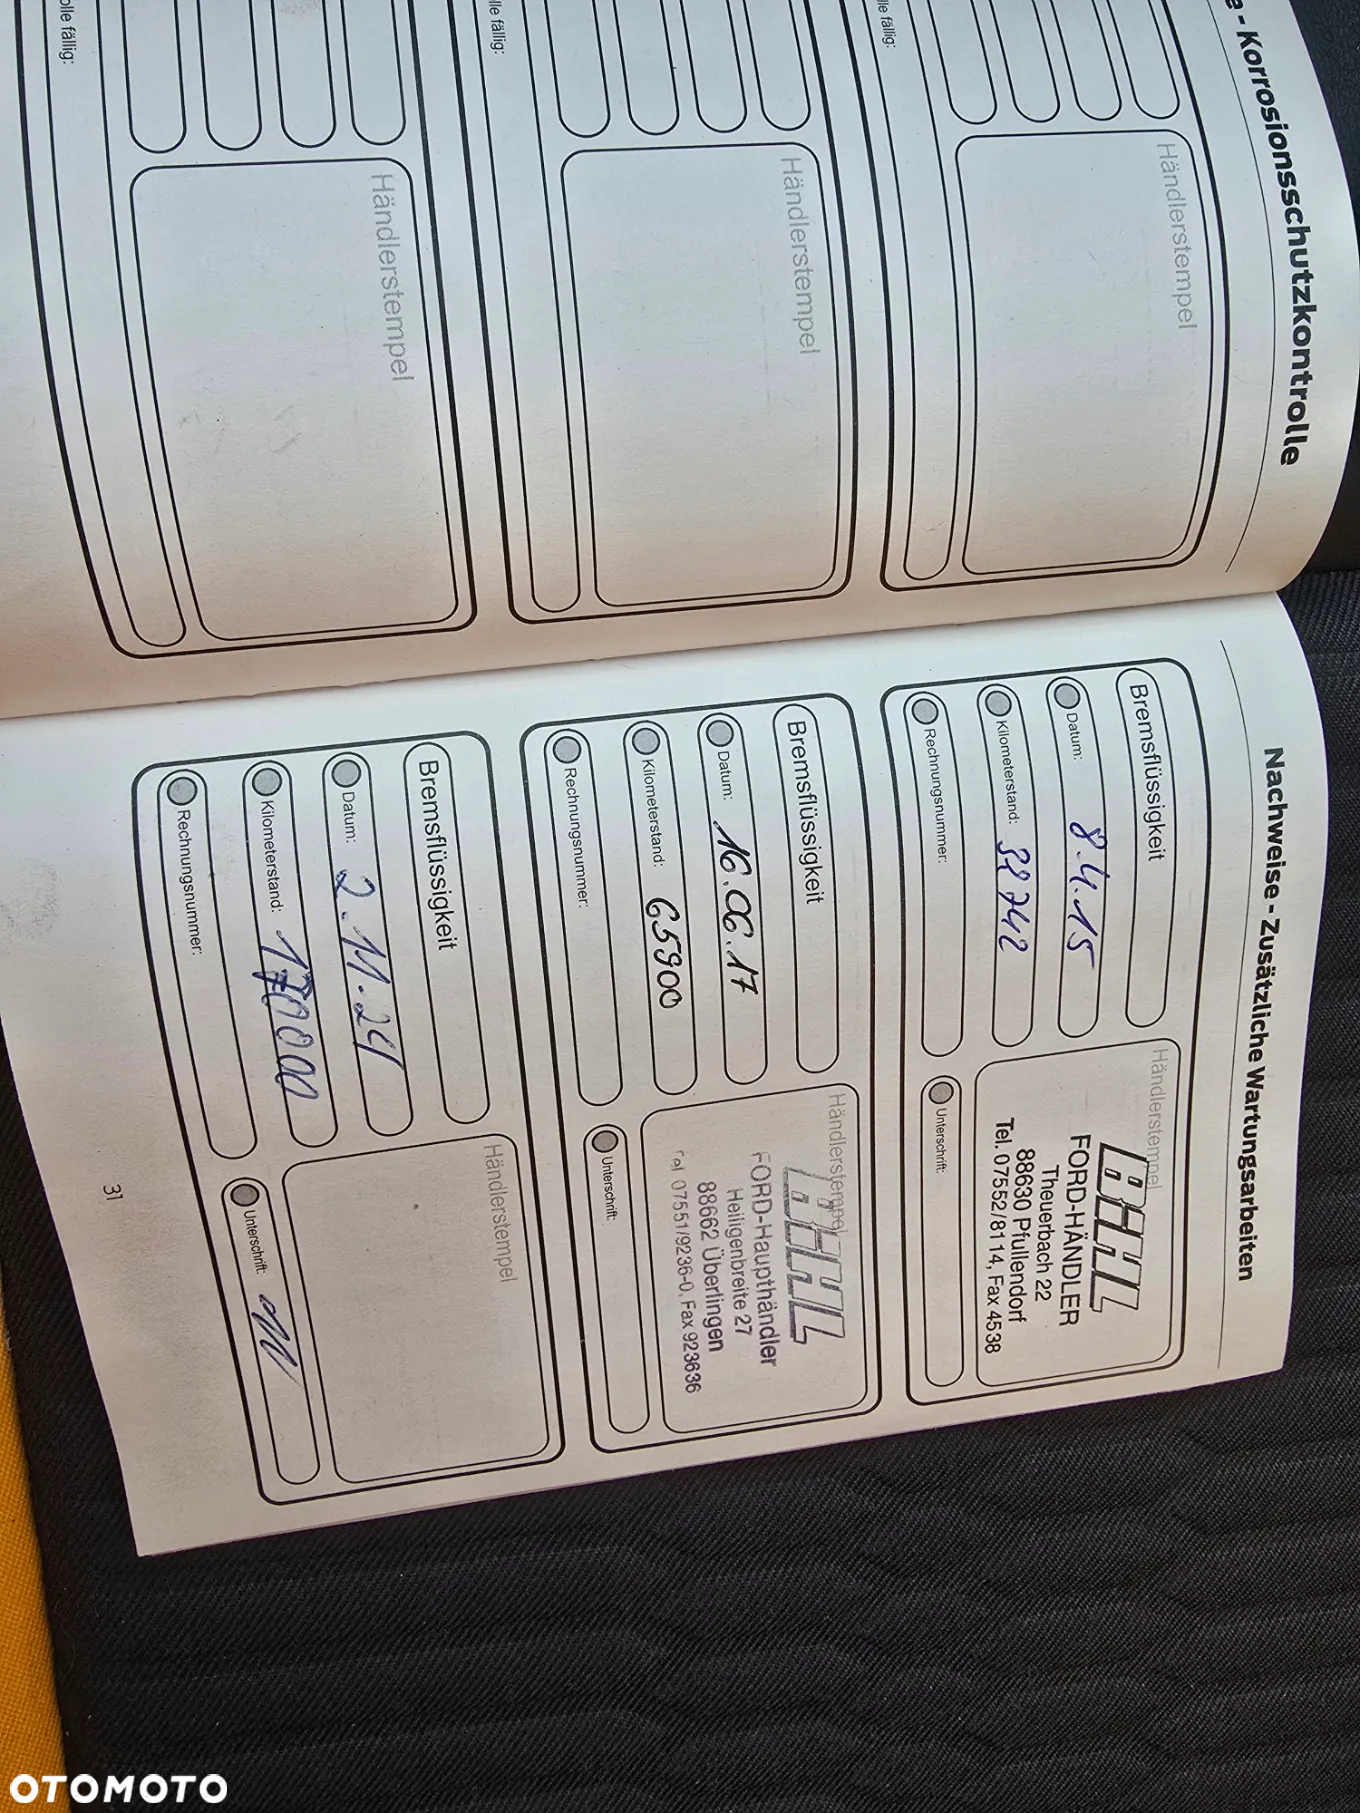 e - Korrosionsschutzkontrolle
Händlerstempel
lle fällig:
Händlerstempel
lle fällig:
Händlerstempel
olle fällig:
Nachweise - Zusätzliche Wartungsarbeiten
Bremsflüssigkeit
Datum: 8.4.15
Kilometerstand: 38742
Rechnungsnummer:
Händlerstempel
BiHL
FORD-HÄNDLER
Theuerbach 22
88630 Pfullendorf
Tel. 07552/8114, Fax 4538
Unterschrift:
Bremsflüssigkeit
Datum: 16.06.17
Kilometerstand: 65900
Rechnungsnummer:
Händlerstempel
BiHL
FORD-Haupthändler
Heiligenbreite 27
88662 Überlingen
Tel 07551/9236-0, Fax 923636
Unterschrift:
Bremsflüssigkeit
Datum: 2.11.24
Kilometerstand: 170000
Rechnungsnummer:
Händlerstempel
Unterschrift:
31
OTOMOTO